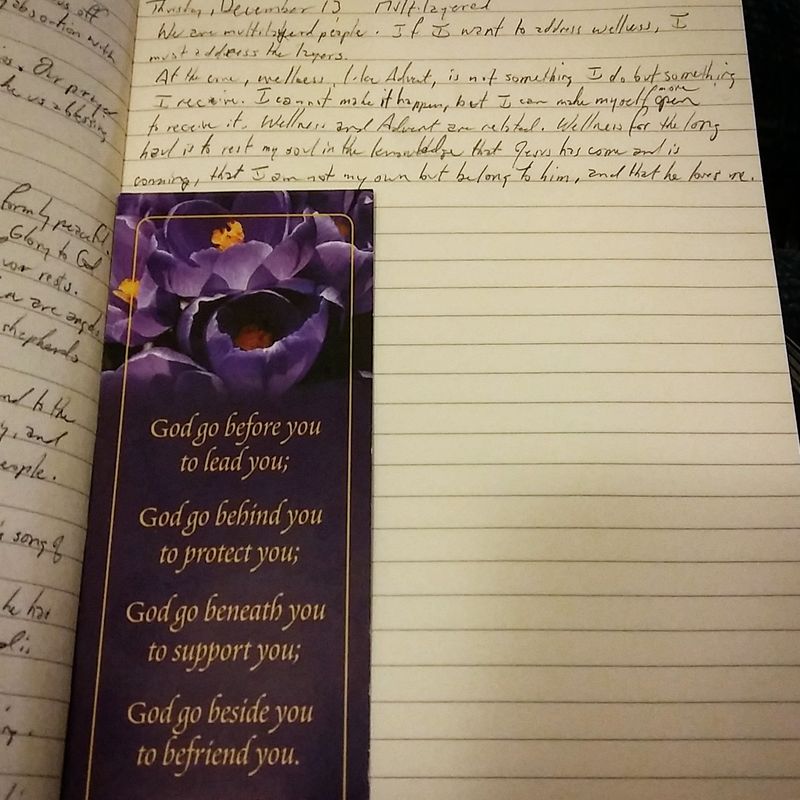 us off
absorption with
Our prayer
he us a blessing
peaceful.
Glory to God
rests.
are angels
shepherds
and to the
, and
people.
song of
he has
Thursday, December 13 Multilayered
We are multilayered people. If I want to address wellness, I
must address the layers.
At the core, wellness, like Advent, is not something I do but something
I receive. I cannot make it happen, but I can make myself more open
to receive it. Wellness and Advent are related. Wellness for the long
haul is to rest my soul in the knowledge that Jesus has come and is
coming, that I am not my own but belong to him, and that he loves me.
God go before you
to lead you;
God go behind you
to protect you;
God go beneath you
to support you;
God go beside you
to befriend you.